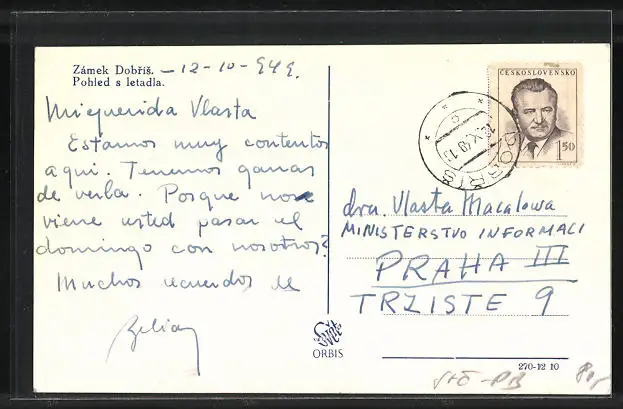 Zámek Dobříš. — 12-10-949.
Pohled s letadla.
Mi querida Vlasta
Estamos muy contentos
aqui. Tenemos ganas
de verla. Porque no se
viene usted pasar el
domingo con nosotros?
Muchos recuerdos de
ČESKOSLOVENSKO
1.50
DOBŘÍŠ
12.X.49.13
dra. Vlasta Macalowa
MINISTERSTVO INFORMALI
PRAHA III
TRZISTE 9
Svět
ORBIS
270-12 10